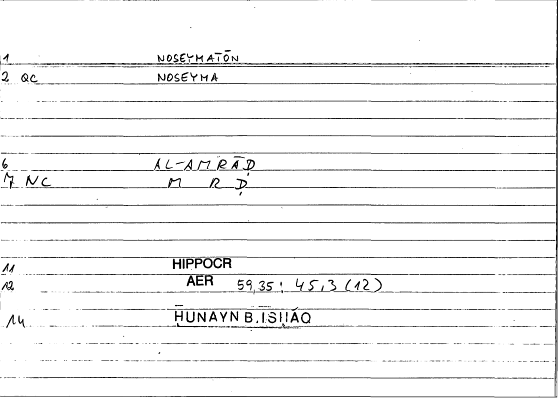 1 NOSEYMATŌN
2 QC NOSEYMA
6 AL-AMRĀḌ
7 NC M R Ḍ
11 HIPPOCR
12 AER 59,35; 45,3 (12)
14 ḤUNAYN B. ISḤĀQ